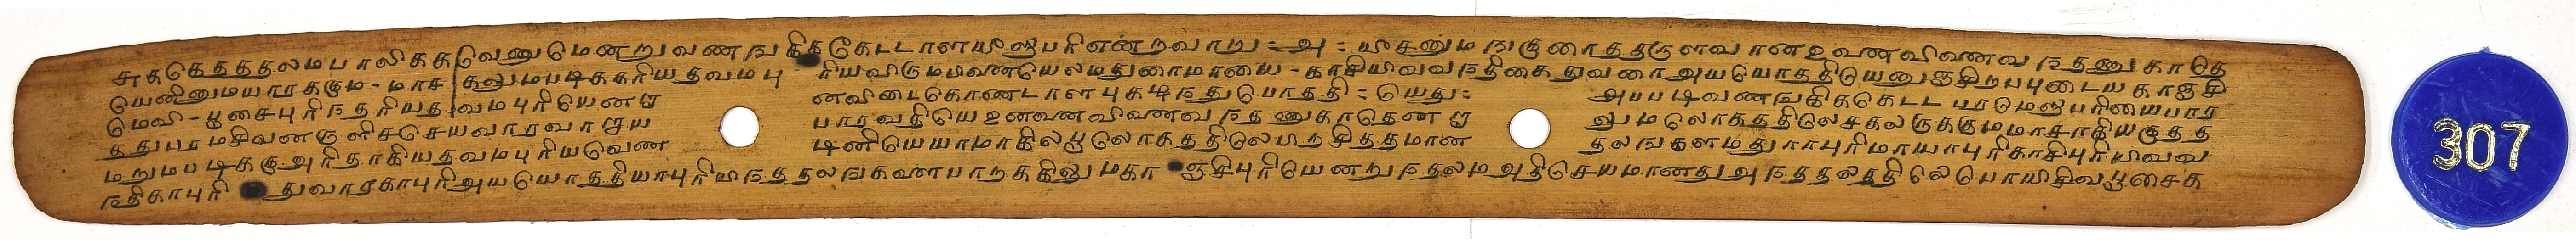 சுகதெதததலமபாலிககவெணுமெனறுவணஙகிககெடடாளயீஸுபரிஎனறவாறு = அ = யீசனுமஙகுரைததருளவானஉவணவிணவநதணுகாதெ
யெனினுமயாரககும - மாசகலுமபடிககரியதவமபுரியவிருமபிணையெலமதுரைமாயை - காசியிவவநதிகைதுவரைஅயயொததியெனுஞசிறபபுடையகாஞசி
மெவி - பூசைபுரிநதரியதவமபுரியெனறு னவிடைகொணடாளபுகழநதுபொததி = யெது = அபபடிவணஙகிககெடட பரமெஸுபரியைபார
ததுபரமசிவனருளிசசெயவாரவாராய பாரவதியெஉனவணவிணவநதணுகாதெனறு லுமலொகததிலெசகலருககுமமாசாகியகுறற
மறுமபடிககுஅரிதாகியதவமபுரியவெண டினியெயாமாகிலபூலொகததிலெபிறசிததமான தலஙகளமதுராபுரிமாயாபுரிகாசிபுரியிவவ
நதிகாபுரி துவாரகாபுரிஅயயொததியாபுரியிநததலஙகளைபாறககிலுமகா ஞசிபுரியெனறுநதலமஅதிசெயமானதுஅநததலததிலெபொயிசிவபூசைக
307